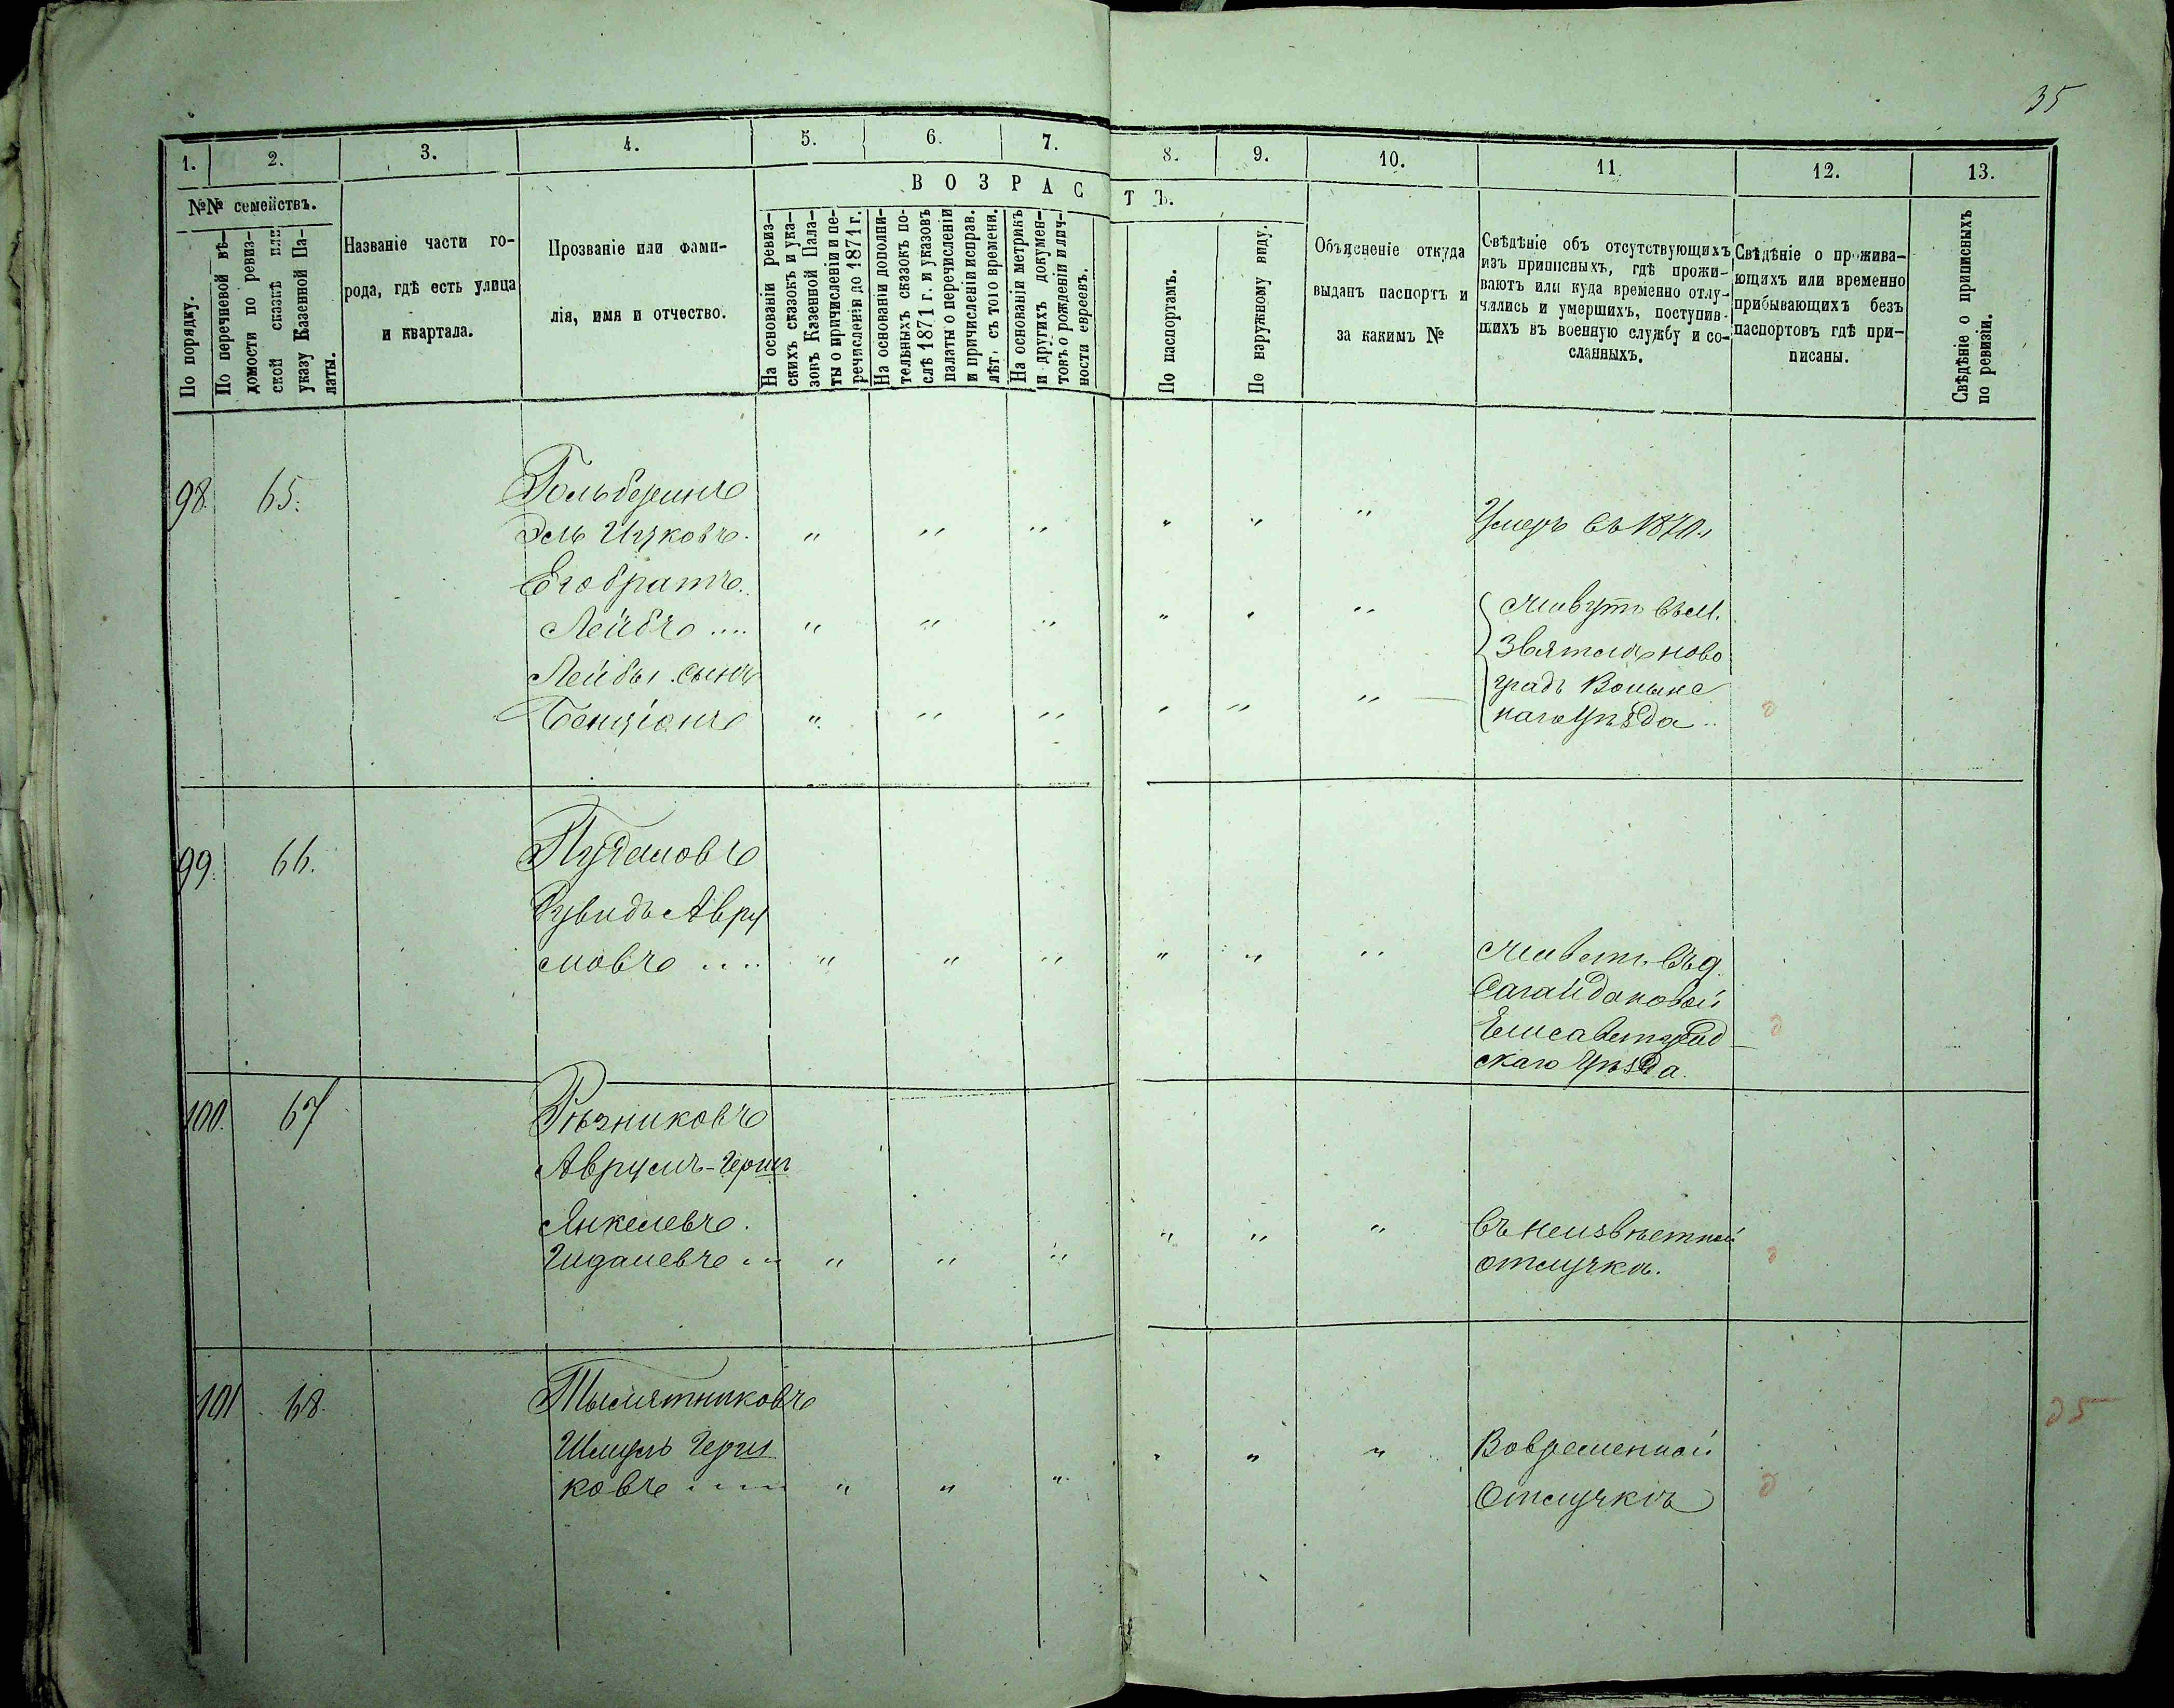 35
1. 2. 3. 4. 5. 6. 7. 8. 9. 10. 11. 12. 13.
№№ семействъ.
По порядку.
По перечневой вѣ-
домости по ревиз-
ской сказкѣ или
указу Казенной Па-
латы.
Названіе части го-
рода, гдѣ есть улица
и квартала.
Прозваніе или фами-
лія, имя и отчество.
ВОЗРАСТЪ.
На основаніи ревиз-
скихъ сказокъ и ука-
зовъ Казенной Пала-
ты о причисленіи и пе-
речисленіи до 1871 г.
На основаніи дополни-
тельныхъ сказокъ по-
слѣ 1871 г. и указовъ
палаты о перечисленіи
и причисленіи исправ.
лѣтъ съ того времени.
На основаніи метрикъ
и другихъ докумен-
товъ о рожденіи и лич-
ности евреевъ.
По паспортамъ.
По наружному виду.
Объясненіе откуда
выданъ паспортъ и
за какимъ №
Свѣдѣніе объ отсутствующихъ
изъ приписныхъ, гдѣ прожи-
ваютъ или куда временно отлу-
чились и умершихъ, поступив-
шихъ въ военную службу и со-
сланныхъ.
Свѣдѣніе о прожива-
ющихъ или временно
прибывающихъ безъ
паспортовъ гдѣ при-
писаны.
Свѣдѣніе о приписныхъ
по ревизіи.
98. 65.
Эль Ицковъ. " " " " " " Умеръ въ 1870 г.
Его братъ.
Лейбъ .... " " " " " " Живутъ въ м.
Звягель ново
Лейбы сынъ
градъ Волынс
Бенціонъ " " " " " "
каго Уѣзда..
99. 66.
Рувидъ Авру
мовъ .... " " " " " " Живетъ въ д.
Сагайдаковой
Елисаветград
скаго Уѣзда.
100. 67
Рѣзниковъ
Аврумъ-Герш
Янкелевъ.
Гидалевъ ... " " " " " " Въ неизвѣстной
отлучкѣ.
101 68.
Тысмятниковъ
Шмуль Герш
ковъ .... " " " " " " Во временной
Отлучкѣ
35